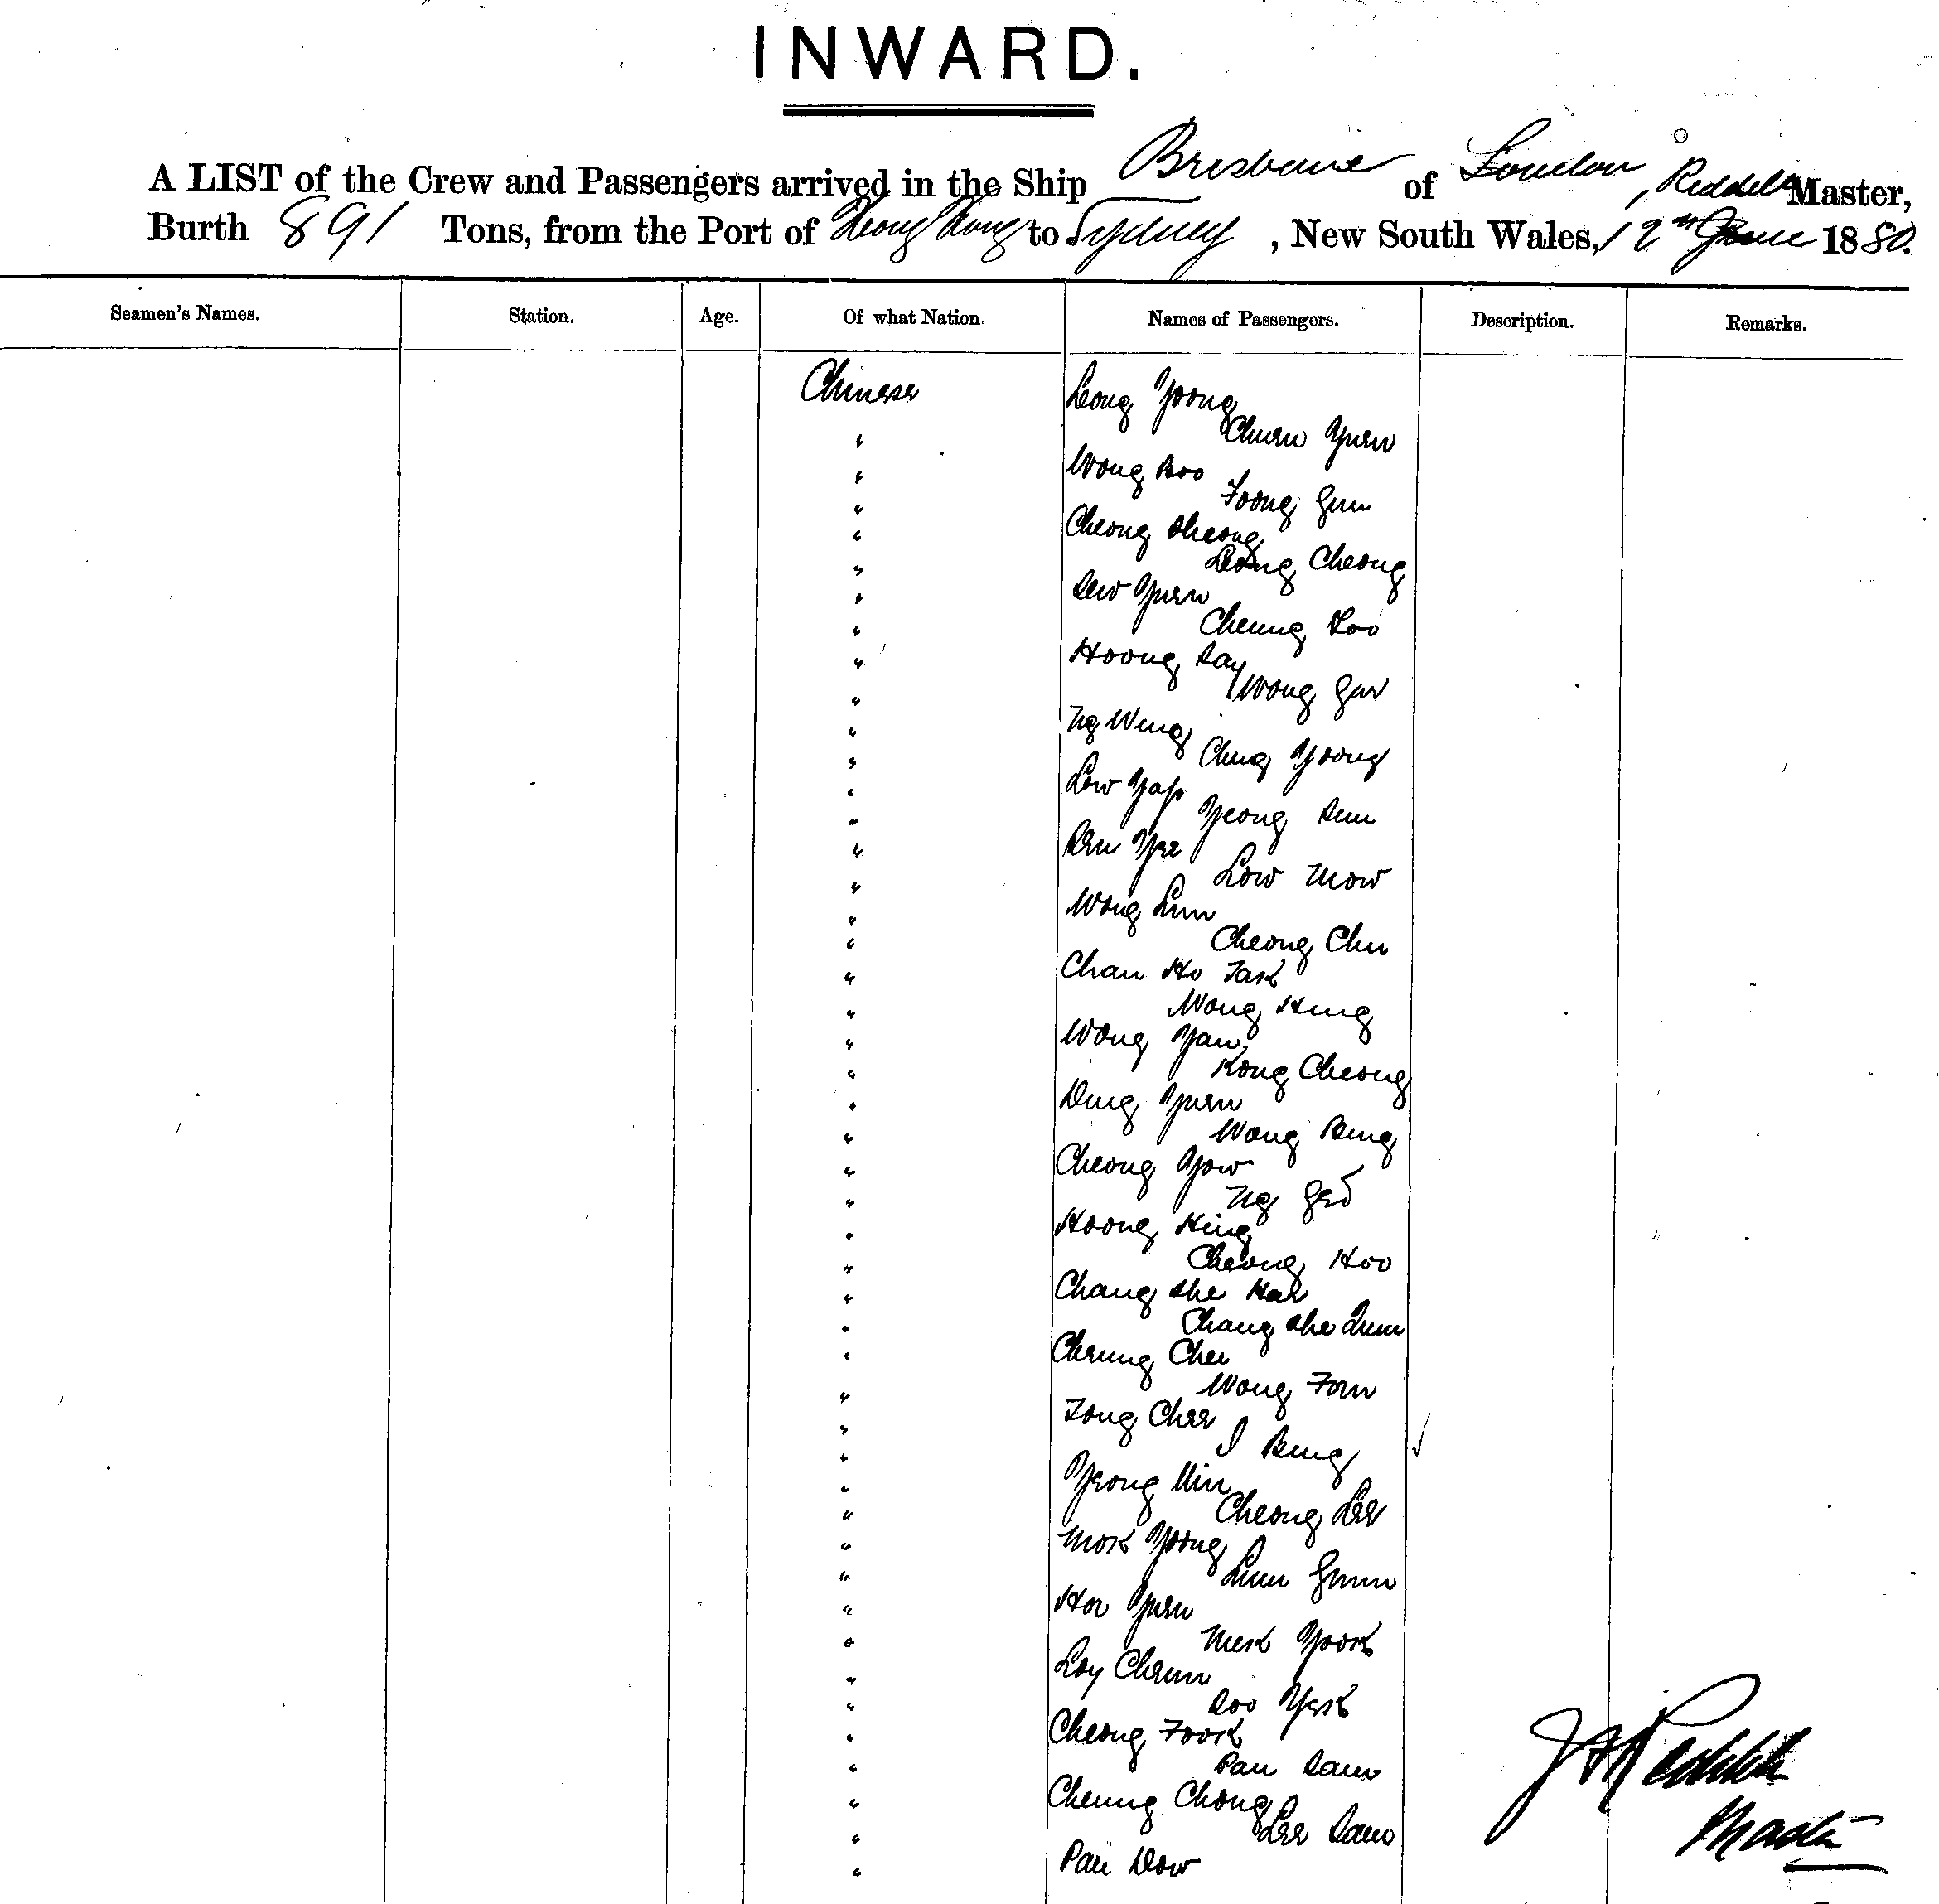 INWARD.
A LIST of the Crew and Passengers arrived in the Ship Brisbane of London, Reddell Master,
Burth 891 Tons, from the Port of Hong Kong to Sydney, New South Wales, 12th June 1880.
Seamen's Names. Station. Age. Of what Nation. Names of Passengers. Description. Remarks.
Chinese Leong Yoong
" Chuen Yuen
" Wong Boo
" Foong Gun
" Cheong Sheong
" Leong Cheong
" Sew Yuen
" Cheung Loo
" Hoong Say
" Wong Gar
" Ng Wing
" Ching Yoong
" Low Yap
" Yeong Sum
" Yee
" Low Mow
" Wong Lum
" Cheong Chu
" Chan Ho Task
" Wong Hing
" Wong Yan
" Kong Cheong
" Ding Yuen
" Wong Bing
" Cheong Yow
" Ng Geo
" Hoong Hing
" Cheong Hoo
" Chang She Har
" Chang She
" Cheung Chu
" Wong Fon
" Fong Chee
" I Bing
" Yeong Min
" Cheong Lee
" Mok Yoong
" Lum
" Hor Yuen
" Mek Yook
" Loy Cheun
" Soo Yek
" Cheong Fook
" Pan Sam
" Cheung Chong
" Lee Sam
" Pan Dow
Reddell
Master